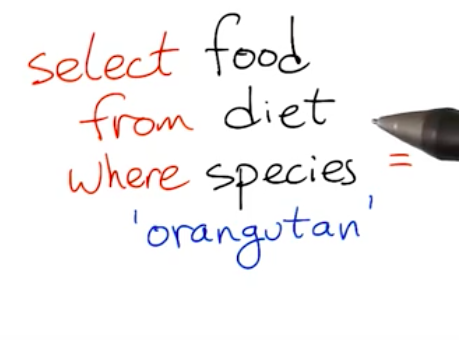 select food
from diet
where species =
'orangutan'